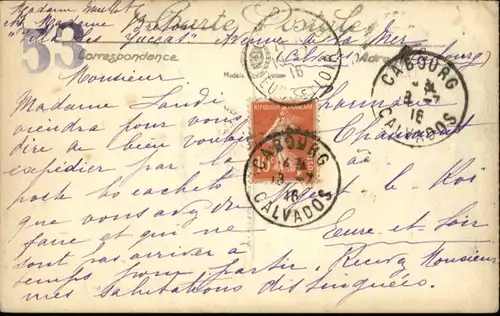 Madame Mulot
chez Madame
"Villa les Yuccas" Avenue de la Mer
Carte Postale
53
Correspondance
Cabourg
Monsieur
Madame Landi
viendra pour vous
dire de bien vouloir
expédier par la
poste 10 cachets
que vous avez
faire et qui ne
sont pas arrivés
temps pour partir. Recevez Monsieur
mes salutations distinguées.
Pharmacie
Chauvert
à
Nogent le Roi
Eure-et-Loir
REPUBLIQUE FRANÇAISE
POSTES
CABOURG
16
CALVADOS
CABOURG
16
CALVADOS
16